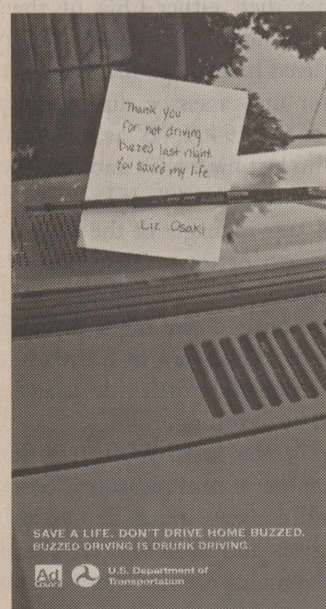 Thank you
for not driving
buzzed last night.
You saved my life.
Liz Osaki
SAVE A LIFE. DON'T DRIVE HOME BUZZED.
BUZZED DRIVING IS DRUNK DRIVING.
Ad
Council
U.S. Department of
Transportation